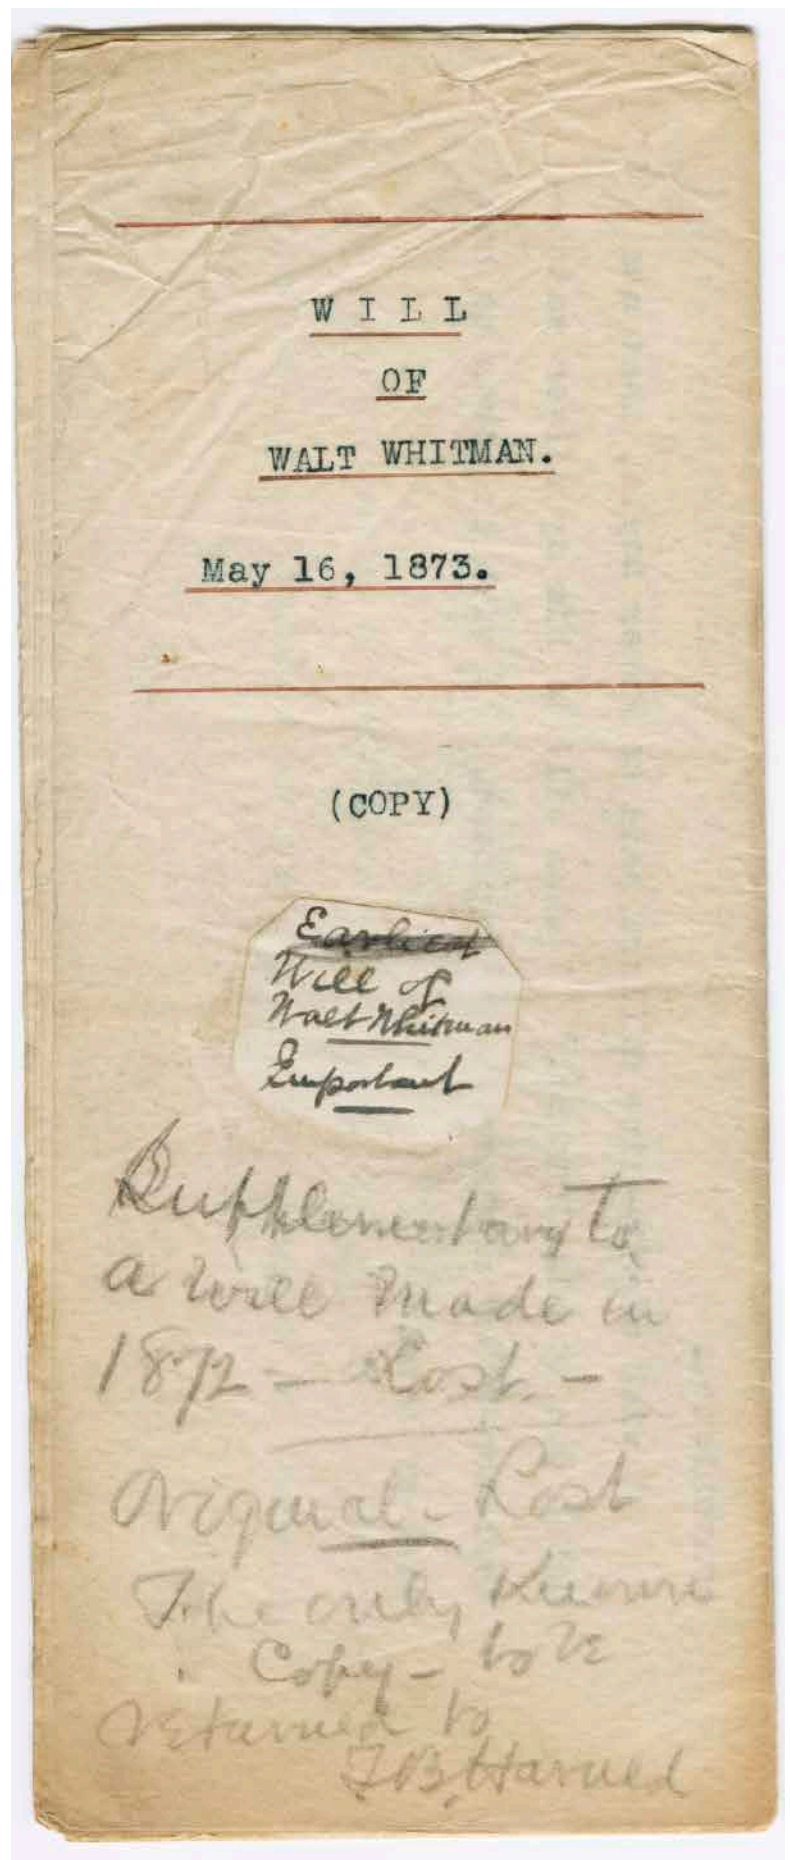 WILL
OF
WALT WHITMAN.
May 16, 1873.
(COPY)
Earliest
Will of
Walt Whitman
Important
Supplementary To
a will made in
1872 — Lost. —
Original - Lost
The only known
Copy - to be
returned to
T.B. Harned